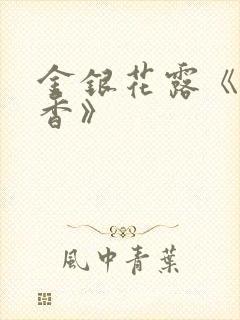 金银花露《
香》
風中青葉